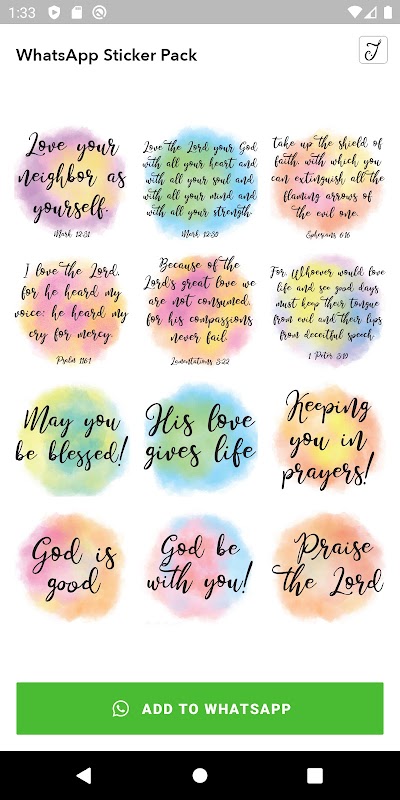 1:33
WhatsApp Sticker Pack
Love your
neighbor as
yourself.
Mark 12:31
Love the Lord your God
with all your heart and
with all your soul and
with all your mind and
with all your strength.
Mark 12:30
take up the shield of
faith, with which you
can extinguish all the
flaming arrows of
the evil one.
Ephesians 6:16
I love the Lord,
for he heard my
voice; he heard my
cry for mercy.
Psalm 116:1
Because of the
Lord's great love we
are not consumed,
for his compassions
never fail.
Lamentations 3:22
For, Whoever would love
life and see good days
must keep their tongue
from evil and their lips
from deceitful speech.
1 Peter 3:10
May you
be blessed!
His love
gives life
Keeping
you in
prayers!
God is
good
God be
with you!
Praise
the Lord
ADD TO WHATSAPP